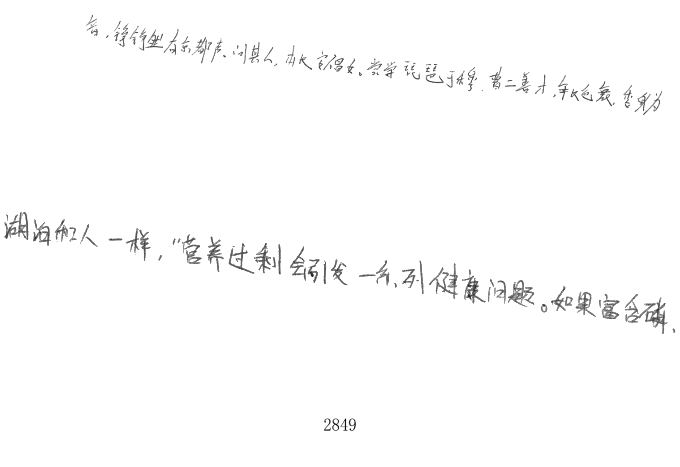 音，铮铮然有京都声。问其人，本长安倡女。尝学琵琶于穆、曹二善才，年长色衰，委身为
湖泊和人一样，"营养过剩会引发一系列健康问题。如果富含磷、
2849